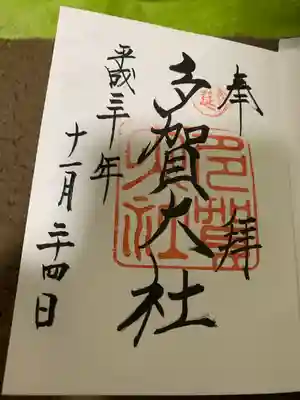 奉拝
多賀大社
平成三十年
十一月二十四日